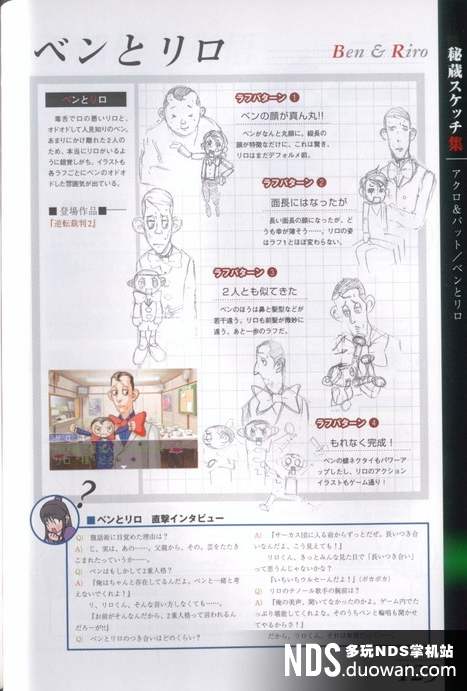 ベンとリロ
Ben & Riro
秘蔵スケッチ集
アクロ&バット／ベンとリロ
ベンとリロ
毒舌で口の悪いリロと、
オドオドして人見知りのベン。
あまりにかけ離れた2人の
ため、本当にリロがいるよう
に錯覚しがち。イラストも
各ラフごとにベンのオドオ
ドした雰囲気が出ている。
■登場作品■
『逆転裁判2』
ラフパターン 1
ベンの顔が真ん丸!!
ベンがなんと丸顔に。縦長の
顔が特徴なだけに、これは驚き。
リロはまだデフォルメ前。
ラフパターン 2
面長にはなったが
長い面長の顔になったが、ど
うも幸が薄そう……。リロの姿
はラフ1とほぼ変わらない。
ラフパターン 3
2人とも似てきた
ベンのほうは鼻と髪型などが
若干違う。リロも前髪が微妙に
違う。あと一歩のラフだ。
ラフパターン 4
もれなく完成！
ベンの蝶ネクタイもパワーア
ップしたし、リロのアクション
イラストもゲーム通り！
?
■ベンとリロ 直撃インタビュー
Q) 腹話術に目覚めた理由は？
A) じ、実は、あの……、父親から、その、芸をたたき
こまれたっていうか……。
Q) ベンはもしかして2重人格？
A) 『俺はちゃんと存在してるんだよ。ベンと一緒と考
えないでくれよ！』
リ、リロくん、そんな言い方しなくても……。
『お前がそんなんだから、2重人格って言われるん
だろーが!!』
Q) ベンとリロのつき合いはどのくらい？
A) 『サーカス団に入る前からずっとだぜ。長いつき合
いなんだよ、こう見えても！』
リロくん、きっとみんな見た目で「長いつき合い」
って思うんじゃないかな？
『いちいちウルセーんだよ！』（ポカポカ）
Q) リロのテノール歌手の腕前は？
A) 『俺の美声、聞いてなかったのかよ。ゲーム内でた
っぷり堪能してくれよな。そのうちベンと輪唱も聞かせ
てやるからさ！』
だから、リロくん、それは
NDS 多玩NDS掌机站
nds.duowan.com